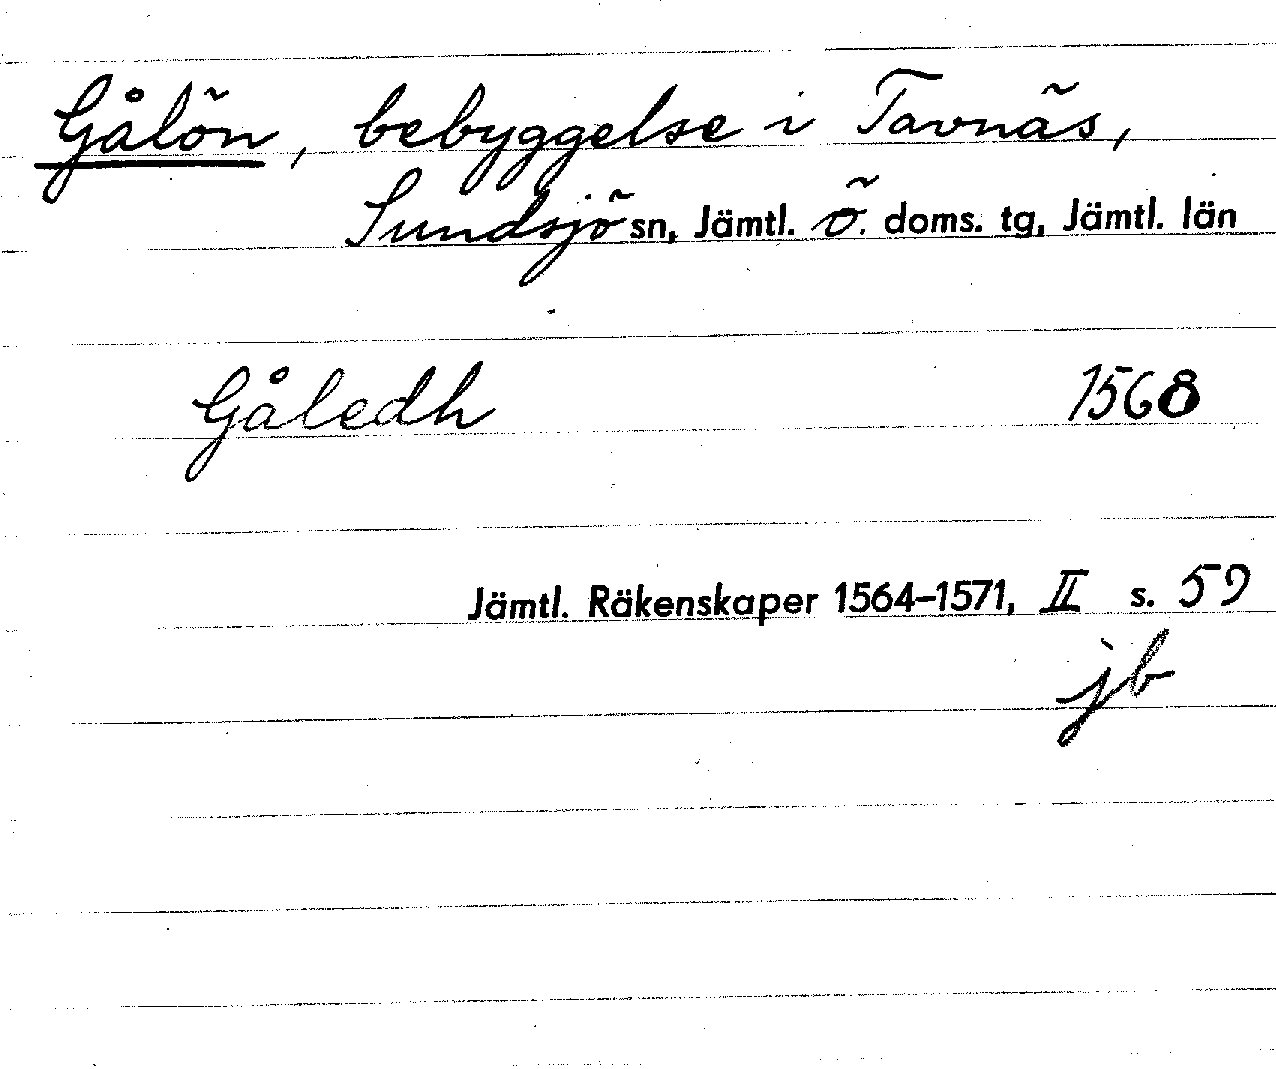 Gålön, bebyggelse i Tavnäs,
Sundsjö sn, Jämtl. ö. doms. tg, Jämtl. län
Gåledh 1568
Jämtl. Räkenskaper 1564–1571, II s. 59
jb